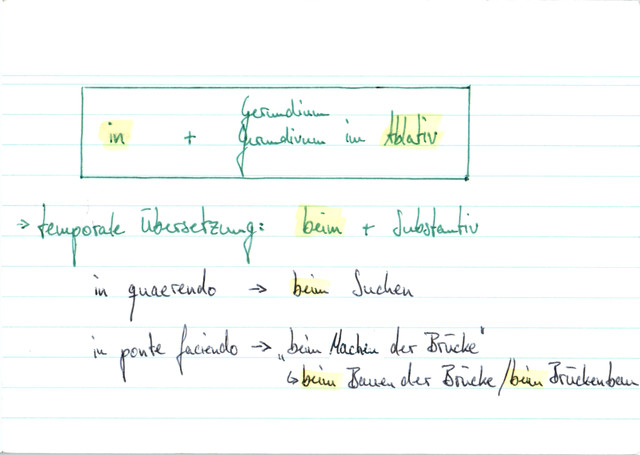 Gerundium
in + Gerundivum im Ablativ
→ temporale Übersetzung: beim + Substantiv
in quaerendo → beim Suchen
in ponte faciendo → „beim Machen der Brücke“
↳ beim Bauen der Brücke / beim Brückenbau